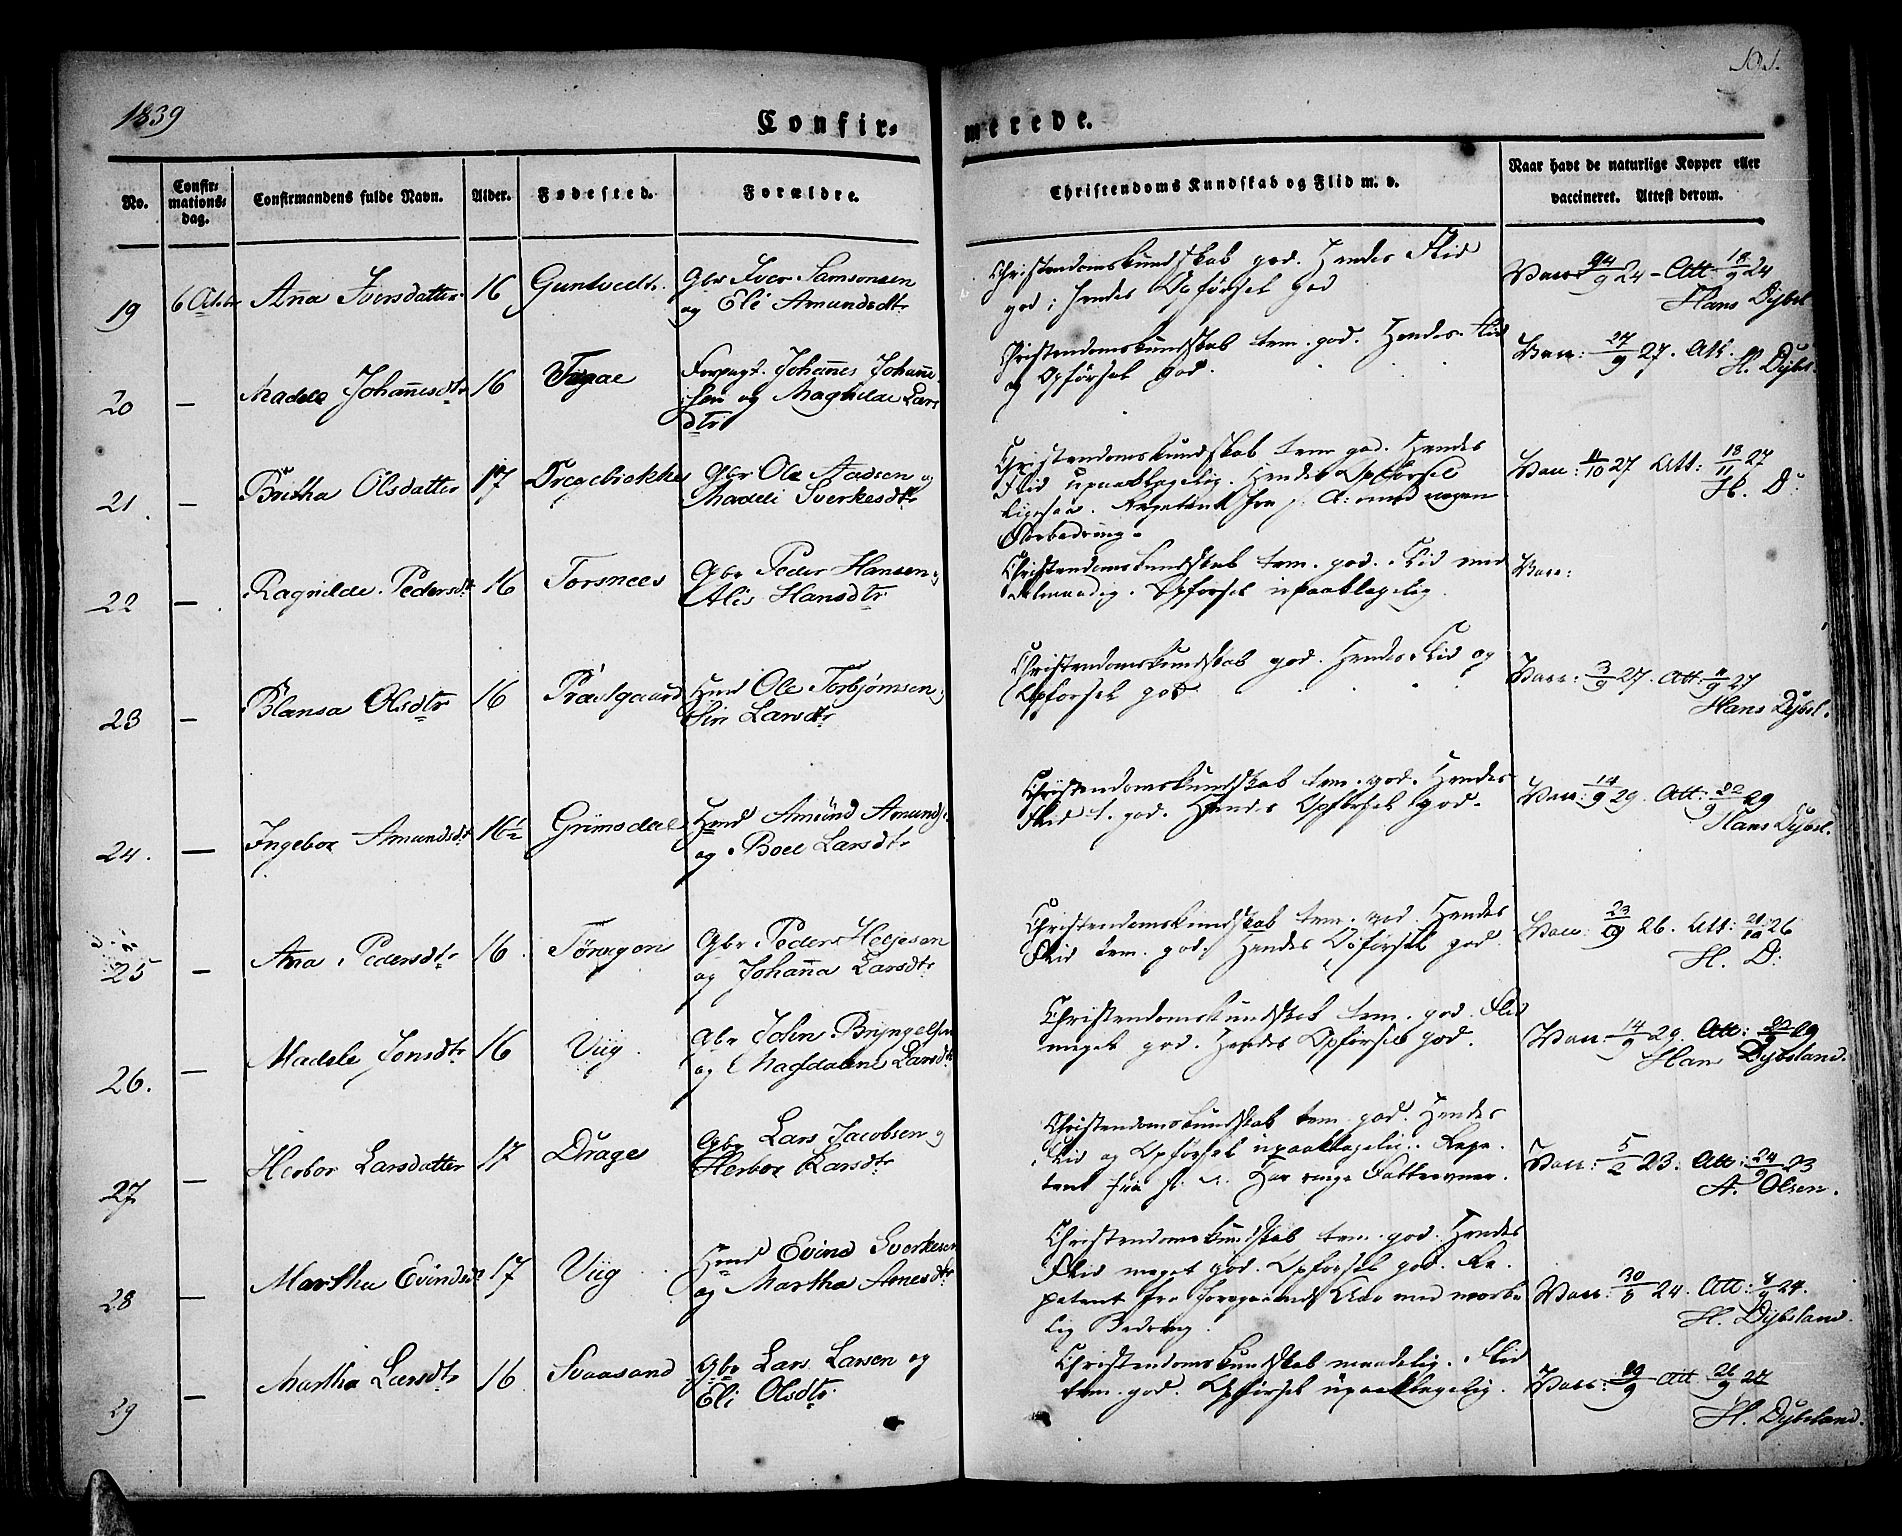 1839
Confirmerede.
No.
Confirmationsdag.
Confirmandens fulde Navn.
Alder.
Fødested.
Forældre.
Christendoms Kundskab og Flid m. v.
Naar havt de naturlige Kopper eller
vaccineret. Attest derom.
19 6 Octbr Aña Iversdatter 16 Guntvedt. Gbr Iver Samsonsen
og Eli Amundsdtr
Christendomskundskab god. Hendes Flid
god; Hendes Opførsel god
Vacc 24 - Att 18/9 24
Hans Dybsl
20 — Madele Johañesdtr 16 Forpagt. Johañes Johañe-
sen og Maghilde Lars
dtr
Christendomskundskab tem. god. Hendes Flid
og Opførsel god.
Vacc: 27/9 27. Att.
H. Dybsl.
21. — Britha Olsdatter 17 Gbr Ole og
Madeli Sverkesdtr
Christendomskundskab tem god. Hendes
Flid upaaklagelig. Hendes Opførsel
ligesaa. Repetent fra f. A. med nogen
Forbedring.
Vacc: 11/10 27 Att: 13/11 27
H. D:
22 — Ragnilde Pedersdt 16 Torsnees Gbr Peder Hansen og
Alis Hansdtr
Christendomskundskab tem. god. Flid mid
delmaadig. Opførsel upaaklagelig.
Vacc:
23 — Blansa Olsdtr 16 Præstgaard Hmd Ole Torbjørnsen
Siri Larsdtr
Christendomskundskab god. Hendes Flid og
Opførsel god
Vacc: 3/9 27. Att: 11/9 27
Hans Dybsl.
24. — Ingebor Amundsdt 16½ Grimsdal Hmd Amund Amunds.
og Boel Larsdtr
Christendomskundskab tem. god. Hendes
Flid t. god. Hendes Opførsel god.
Vacc: 14/9 29. Att: 22/9 29
Hans Dybsl.
25 — Aña Pedersdtr 16. Gbr Peder Heljesen
og Johaña Larsdtr
Christendomskundskab tem. god. Hendes
Flid tem. god. Hendes Opførsel god.
Vacc: 26. Att: 26
H. D:
26. — Madele Jonsdtr 16 Viig. Gbr John Bryngelsen
og Magdalene Larsdtr
Christendomskundskab tem. god. Flid
meget god. Hendes Opførsel god.
Vacc: 14/9 29. Att: 22/9 29
Hans Dybsland.
27 — Herbor Larsdatter 17 Drage Gbr Lars Jacobsen og
Herbor Larsdtr
Christendomskundskab tem. god. Hendes
Flid og Opførsel upaaklagelig. Repe-
tent fra f. A. Har ringe Fatteevner.
Vacc: 5/2 23. Att: 24/9 23
A. Olsen.
28 — Martha Evindsdt 17 Viig Hmd Evind Sverkesen
og Martha Arnesdtr
Christendomskundskab tem. god. Hendes
Flid meget god. Opførsel god. Re-
petent fra foregaaende Aar med mærke
lig Bedring.
Vacc: 24. Att: 24.
H. Dybsland.
29 — Martha Larsdtr 16 Svaasand Gbr Lars Larsen og
Eli Olsdtr.
Christendomskundskab maadelig. Flid
tem. god. Opførsel upaaklagelig.
Vacc: Att 26/9 27
H. Dybsland.